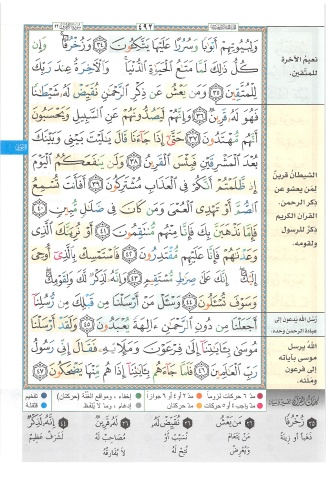 ٤٩٢
وَلِبُيُوتِهِمْ أَبْوَٰبًا وَسُرُرًا عَلَيْهَا يَتَّكِـُٔونَ ٣٤ وَزُخْرُفًا وَإِن
كُلُّ ذَٰلِكَ لَمَّا مَتَٰعُ ٱلْحَيَوٰةِ ٱلدُّنْيَا وَٱلْءَاخِرَةُ عِندَ رَبِّكَ
لِلْمُتَّقِينَ ٣٥ وَمَن يَعْشُ عَن ذِكْرِ ٱلرَّحْمَٰنِ نُقَيِّضْ لَهُۥ شَيْطَٰنًا
فَهُوَ لَهُۥ قَرِينٌ ٣٦ وَإِنَّهُمْ لَيَصُدُّونَهُمْ عَنِ ٱلسَّبِيلِ وَيَحْسَبُونَ
أَنَّهُم مُّهْتَدُونَ ٣٧ حَتَّىٰٓ إِذَا جَآءَنَا قَالَ يَٰلَيْتَ بَيْنِى وَبَيْنَكَ
بُعْدَ ٱلْمَشْرِقَيْنِ فَبِئْسَ ٱلْقَرِينُ ٣٨ وَلَن يَنفَعَكُمُ ٱلْيَوْمَ
إِذ ظَّلَمْتُمْ أَنَّكُمْ فِى ٱلْعَذَابِ مُشْتَرِكُونَ ٣٩ أَفَأَنتَ تُسْمِعُ
ٱلصُّمَّ أَوْ تَهْدِى ٱلْعُمْىَ وَمَن كَانَ فِى ضَلَٰلٍ مُّبِينٍ ٤٠
فَإِمَّا نَذْهَبَنَّ بِكَ فَإِنَّا مِنْهُم مُّنتَقِمُونَ ٤١ أَوْ نُرِيَنَّكَ ٱلَّذِى
وَعَدْنَٰهُمْ فَإِنَّا عَلَيْهِم مُّقْتَدِرُونَ ٤٢ فَٱسْتَمْسِكْ بِٱلَّذِىٓ أُوحِىَ
إِلَيْكَ إِنَّكَ عَلَىٰ صِرَٰطٍ مُّسْتَقِيمٍ ٤٣ وَإِنَّهُۥ لَذِكْرٌ لَّكَ وَلِقَوْمِكَ
وَسَوْفَ تُسْـَٔلُونَ ٤٤ وَسْـَٔلْ مَنْ أَرْسَلْنَا مِن قَبْلِكَ مِن رُّسُلِنَآ
أَجَعَلْنَا مِن دُونِ ٱلرَّحْمَٰنِ ءَالِهَةً يُعْبَدُونَ ٤٥ وَلَقَدْ أَرْسَلْنَا
مُوسَىٰ بِـَٔايَٰتِنَآ إِلَىٰ فِرْعَوْنَ وَمَلَإِي۟هِۦ فَقَالَ إِنِّى رَسُولُ
رَبِّ ٱلْعَٰلَمِينَ ٤٦ فَلَمَّا جَآءَهُم بِـَٔايَٰتِنَآ إِذَا هُم مِّنْهَا يَضْحَكُونَ ٤٧
نعيمُ الآخرة
للمتّقين.
الشيطانُ قرينُ
لمَن يعشو عن
ذكر الرحمن.
القرآن الكريم
ذكرٌ للرسول
ولقومه.
رُسُل اللهِ يَدعونَ إلى
عبادة الرحمن وحده.
اللهُ يرسل
موسى بآياته
إلى فرعون
وملئه.
مدّ ٦ حركات لزوماً مدّ ٢ أو ٤ أو ٦ جوازاً
إخفاء، ومواقع الغُنَّة (حركتان) تفخيم
مدّ واجب ٤ أو ٥ حركات مدّ حركتان
إدغام، وما لا يُلفَظ قلقلة
٣٥ زُخْرُفًا
ذهباً أو زينةً
٣٦ مَن يَعْشُ
مَن يتعامَ
ويُعرِض
٣٦ نُقَيِّضْ لَهُ
نُسبِّب أو
نُتِح له
٣٦ لَهُ قَرِينٌ
مصاحبٌ له
لا يفارقُه
٤٤ إِنَّهُ لَذِكْرٌ
لشرفٌ عظيمٌ